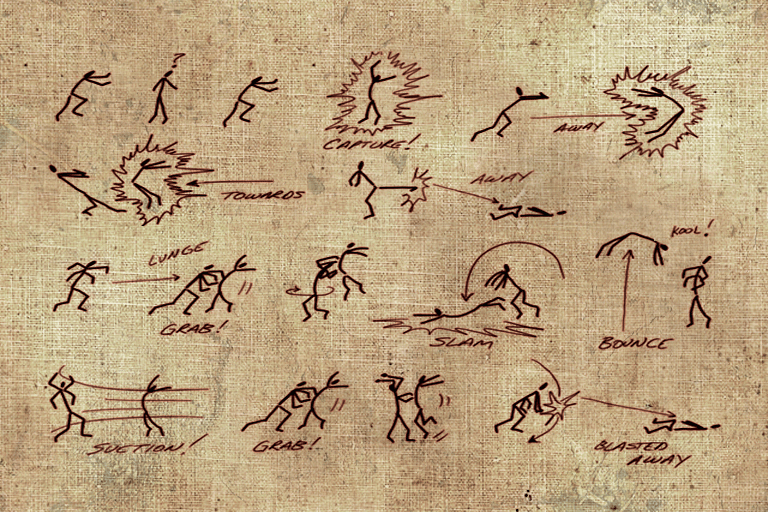 ?
CAPTURE!
AWAY
TOWARDS
AWAY
LUNGE
GRAB!
SLAM
KOOL!
BOUNCE
SUCTION!
GRAB!
BLASTED
AWAY